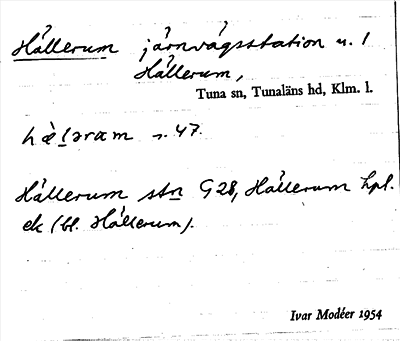 Hållerum järnvägsstation u. 1
Hållerum,
Tuna sn, Tunaläns hd, Klm. l.
hæ̀lərɑm 47.
Hållerum stn G 28, Hållerum hpl.
ek (bl. Hållerum).
Ivar Modéer 1954